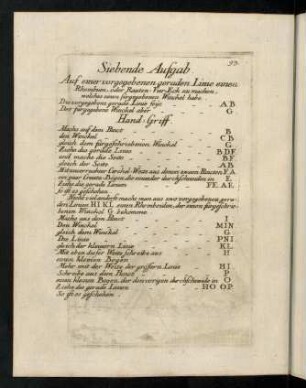 93.
Siebende Aufgab
Auf einer vorgegebenen geraden Linie einen
Rhombum, oder Rauten-Vier-Eck zu machen,
welches einen fürgegebenen Winckel habe.
Die vorgegebene gerade Linie seye A B
Der fürgegebene Winckel aber G
Hand-Griff.
Mache auf dem Punct B
den Winckel C B
gleich dem fürgeschriebenen Winckel G.
Ziehe die gerade Linie B D F
und mache die Seite B F
gleich der Seite A B
ein paar Creutz-Bögen, die einander durchschneiden in E.
Ziehe die gerade Linien F E. A E.
So ist es geschehen
den Linien H I. K L. einen Rhomboiden, der einen fürgeschrie-
benen Winckel G bekomme
Mache aus dem Punct I
Den Winckel M I N
gleich dem Winckel G
Die Linie P N I
gleich der kleinern Linie K L.
Mit eben dieser Weite schreibe aus H
einen kleinen Bogen
Mehr mit der Weite der grössern Linie H I.
Schreibe aus dem Punct P
einen kleinen Bogen, der den vorigen durchschneide in O
Ziehe die gerade Linien H O O P.
So ist es geschehen